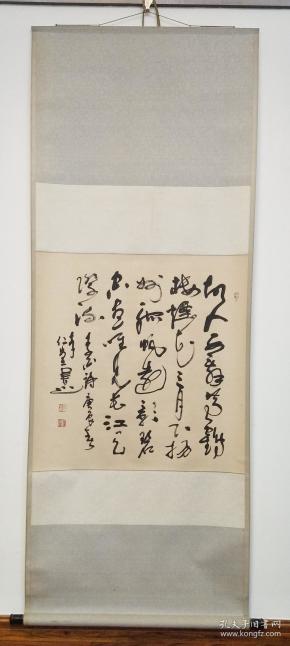 故人西辞黄鹤
楼烟花三月下扬
州孤帆远影碧
空尽唯见长江天
际流
李白诗庚午
孔夫子旧书网
www.kongfz.com